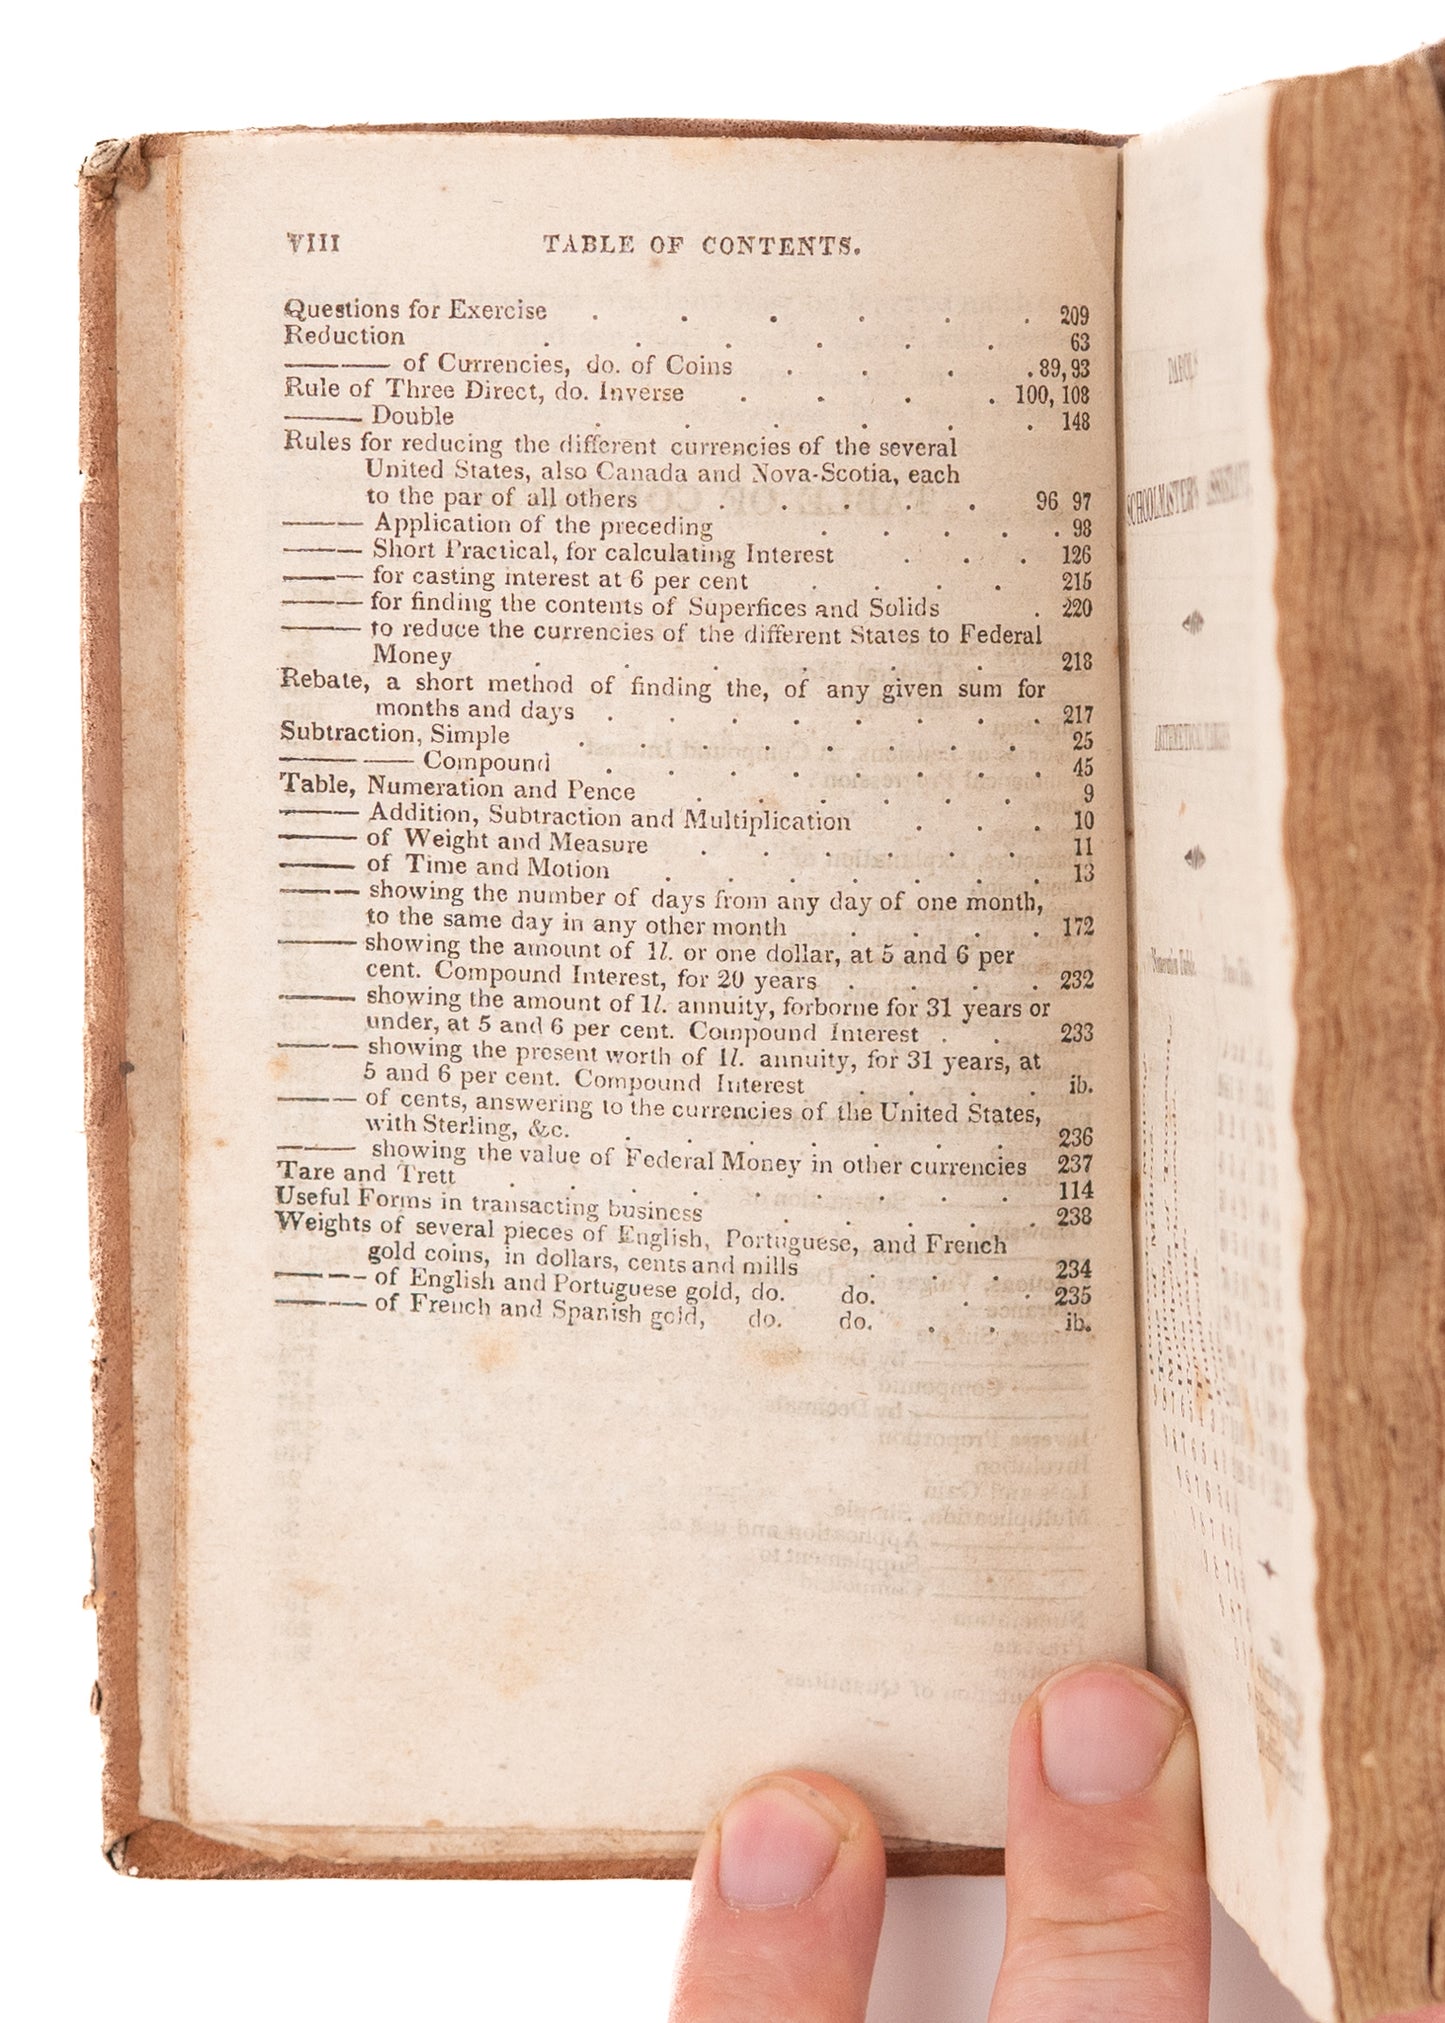 VIII TABLE OF CONTENTS.
Questions for Exercise . . . . . . 209
Reduction . . . . . . 63
—— —— of Currencies, do. of Coins . . . . 89, 93
Rule of Three Direct, do. Inverse . . . . 100, 108
——— Double . . . . . . 148
Rules for reducing the different currencies of the several
United States, also Canada and Nova-Scotia, each
to the par of all others . . . . . 96 97
——— Application of the preceding . . . . . 98
——— Short Practical, for calculating Interest . . . 126
——— for casting interest at 6 per cent . . . . 215
——— for finding the contents of Superfices and Solids . 220
——— to reduce the currencies of the different States to Federal
Money . . . . . . 218
Rebate, a short method of finding the, of any given sum for
months and days . . . . . . . . 217
Subtraction, Simple . . . . . . . . 25
—— —— Compound . . . . . . . . 45
Table, Numeration and Pence . . . . . . 9
——— Addition, Subtraction and Multiplication . . . 10
——— of Weight and Measure . . . . . . 11
——— of Time and Motion . . . . . . . 13
——— showing the number of days from any day of one month,
to the same day in any other month . . . . 172
——— showing the amount of 1l. or one dollar, at 5 and 6 per
cent. Compound Interest, for 20 years . . . . 232
——— showing the amount of 1l. annuity, forborne for 31 years or
under, at 5 and 6 per cent. Compound Interest . . 233
——— showing the present worth of 1l. annuity, for 31 years, at
5 and 6 per cent. Compound Interest . . . . ib.
——— of cents, answering to the currencies of the United States,
with Sterling, &c. . . . . . . . 236
——— showing the value of Federal Money in other currencies 237
Tare and Trett . . . . . . . . . 114
Useful Forms in transacting business . . . . . 238
Weights of several pieces of English, Portuguese, and French
gold coins, in dollars, cents and mills . . . 234
——— of English and Portuguese gold, do. do. . . 235
——— of French and Spanish gold, do. do. . . ib.
SCHOOLMASTER'S
Numeration Table.